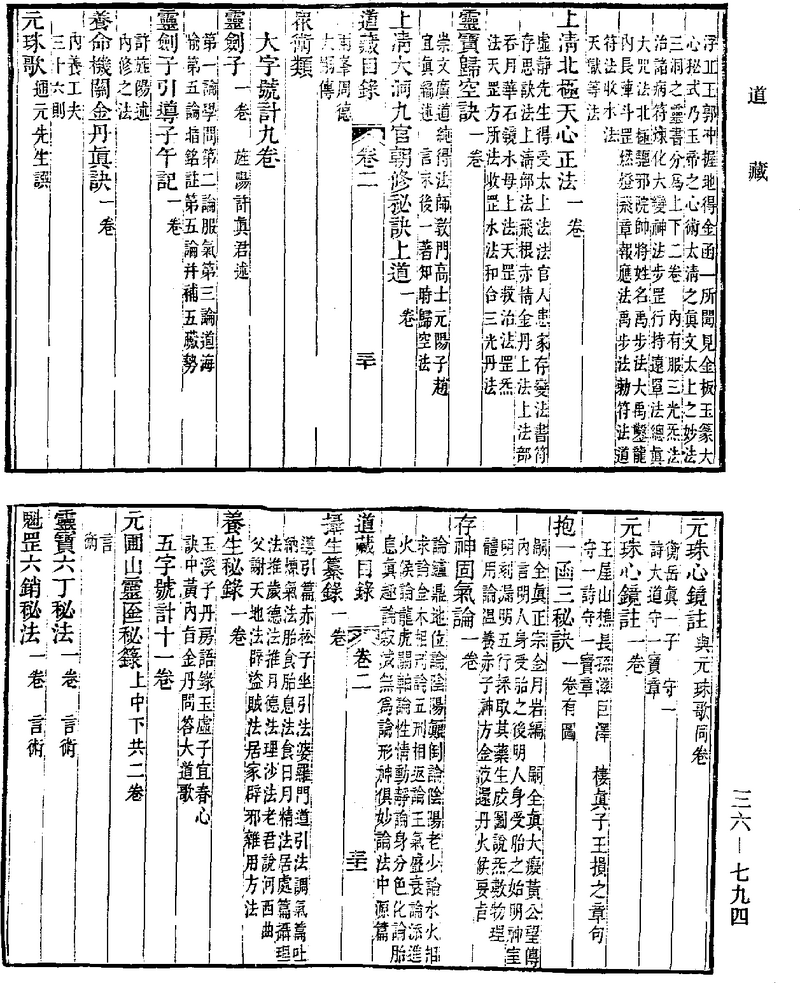 道藏
浮丘王郭冲握地得金函一所聞見金板玉篆大
心祕式乃玉帝之心術太清之眞文太上之妙法
三洞之靈書分爲上下二卷　內有服三光炁法
治諸病符煉化大變神法步罡行持遠罩法總眞
大咒法北極驅邪院帥將姓名禹步法大禹鑿龍
內長連斗罡緣燈飛章報應法禹步法勅符法道
符法收水法
天獄等法
上淸北極天心正法一卷
虛靜先生得受太上法法官人患家存變法書符
存思訣法上淸部法飛根赤情金丹上法上法部
吞月華石鏡水母上法天罡救治法罡炁
法天罡方所法收罡水法和合三光丹法
靈寶歸空訣一卷
崇文廣道純得法師敎門高士元陽子趙
宜眞編述　言末後一著知時歸空法
上淸大洞九宮朝修祕訣上道一卷
道藏目錄　卷二　三十
南峯周德
大 傳
衆術類
大字號計九卷
靈劍子一卷　旌陽許眞君述
第一論學問第二論服氣第三論道海
喻第五論指銘註第五論幷補五臟勢
靈劍子引導子午記一卷
許旌陽述
內修之法
養命機關金丹眞訣一卷
內養工夫
三十六則
元珠歌　通元先生譔
元珠心鏡註　與元珠歌同卷
衡岳眞一子　守一
詩大道守一寶章
元珠心鏡註一卷
王屋山樵長孫滋巨澤　棲眞子王損之章句
守一詩守一寶章
抱一函三秘訣一卷有圖
嗣全眞正宗金月岩編　嗣全眞大癡黃公望傳
內言明人身受胎之後明人身受胎之始明神室
明刻漏明五行採取其藥生成圖說炁敷物理
體用論溫養赤子神方金液還丹火候要吉
存神固氣論一卷
論鑪鼎地位論陰陽顚倒論陰陽老少論水火相
求論金木相尅論五刑相返論王氣盛衰論添進
火候論龍虎關軸論性情動靜論身分色化論胎
息眞趣論寂滅無爲論形神俱妙論法中源篇
道藏目錄　卷二　三十一
攝生纂錄一卷
導引篇赤松子坐引法婆羅門道引法調氣篇吐
納煉氣法胎食胎息法食日月精法居處篇攝理
法推歲德法推月德法理沙法老君說河西曲
父謝天地法辟盜賊法居家辟邪雜用方法
養生秘錄一卷
玉溪子丹房語錄玉虛子宜春心
訣中黃內旨金丹問答大道歌
五字號計十一卷
元圃山靈匧秘籙上中下共二卷
言
術
靈寶六丁秘法一卷　言術
魁罡六鎖秘法一卷　言術
三六—七九四